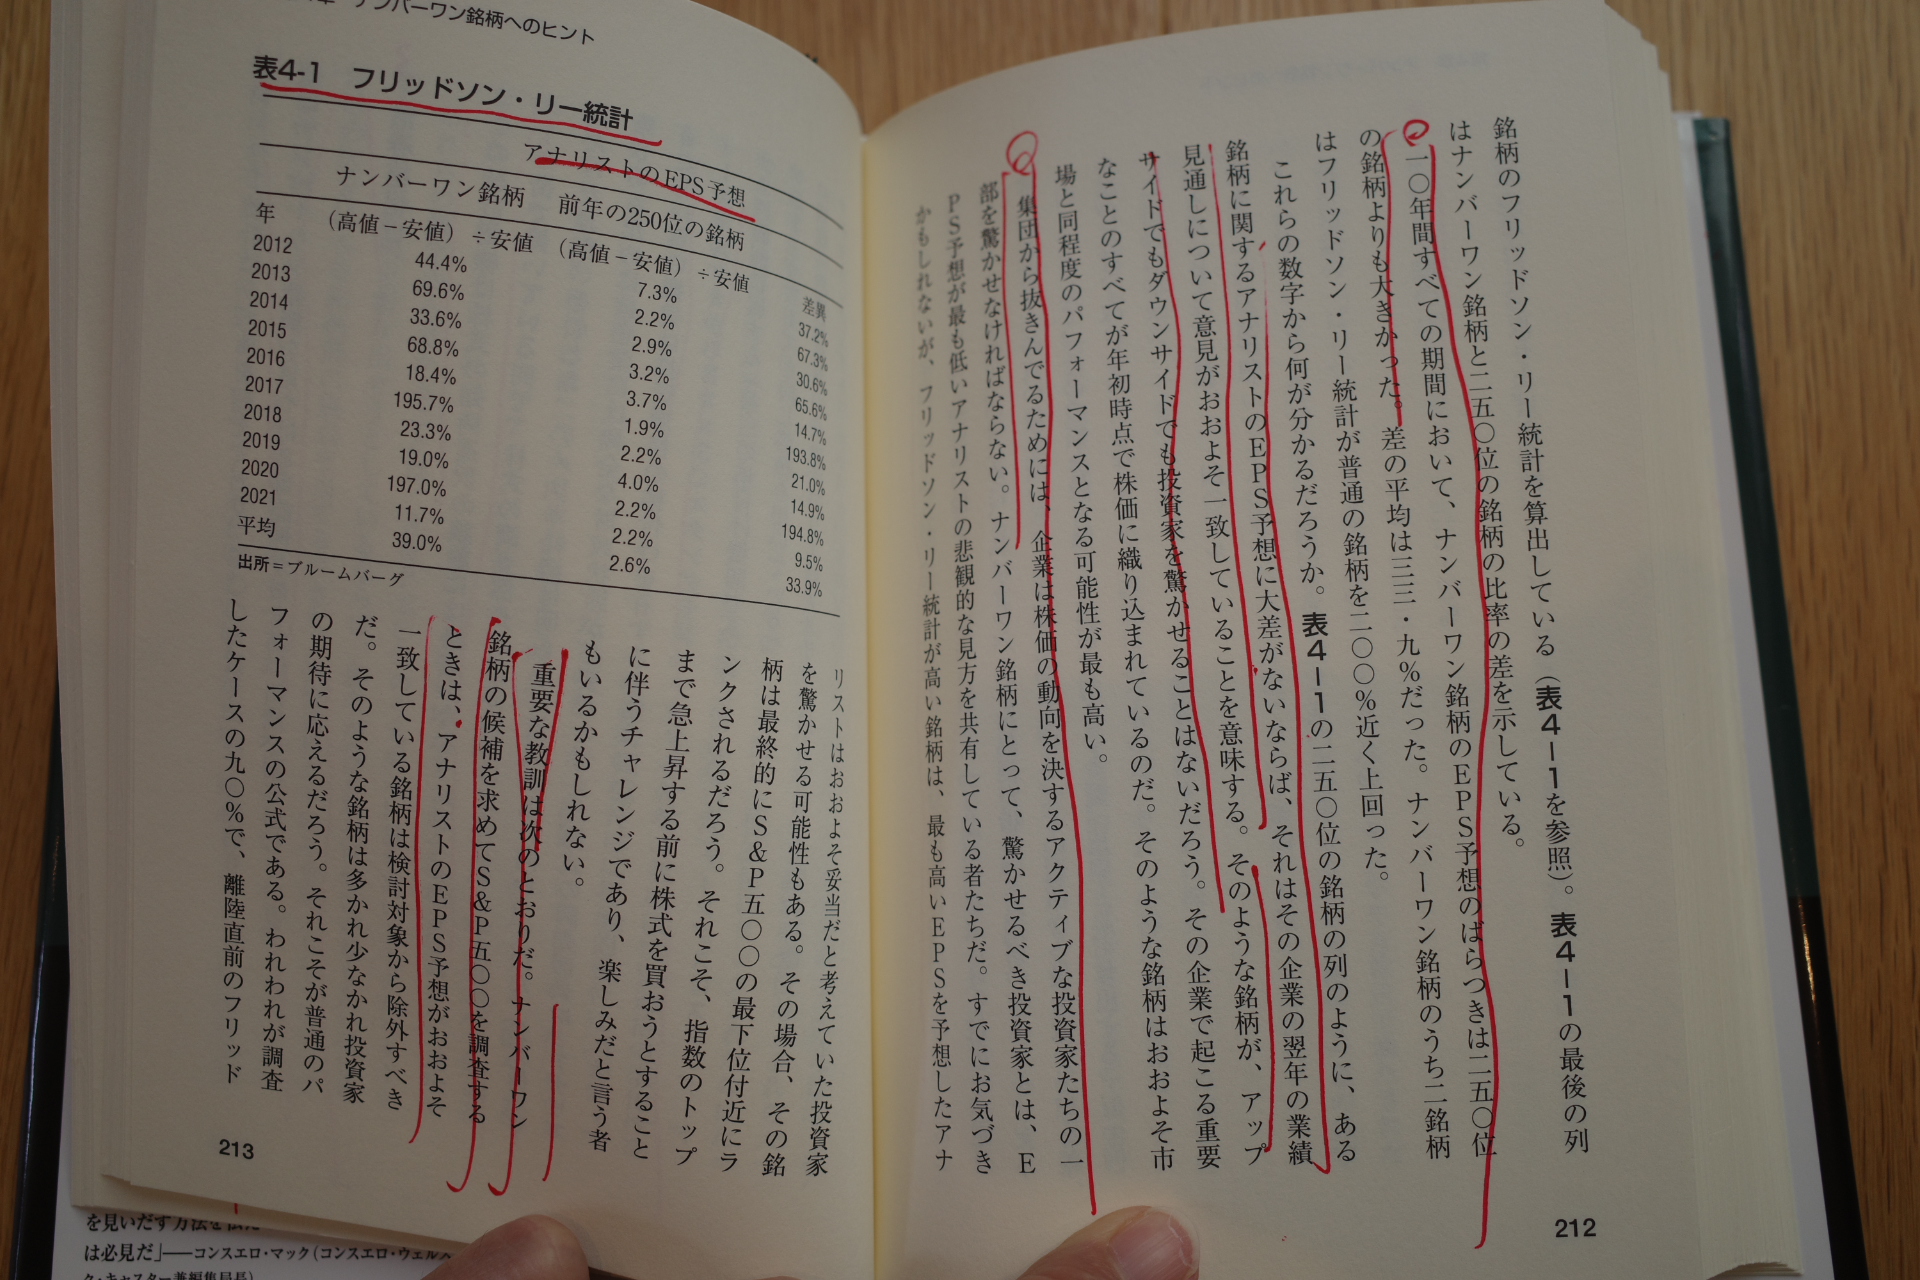 銘柄のフリッドソン・リー統計を算出している（表4-1を参照）。表4-1の最後の列
はナンバーワン銘柄と二五〇位の銘柄の比率の差を示している。
一〇年間すべての期間において、ナンバーワン銘柄のEPS予想のばらつきは二五〇位
の銘柄よりも大きかった。差の平均は三三・九%だった。ナンバーワン銘柄のうち二銘柄
はフリッドソン・リー統計が普通の銘柄を二〇〇%近く上回った。
これらの数字から何が分かるだろうか。表4-1の二五〇位の銘柄の列のように、ある
銘柄に関するアナリストのEPS予想に大差がないならば、それはその企業の翌年の業績
見通しについて意見がおおよそ一致していることを意味する。そのような銘柄が、アップ
サイドでもダウンサイドでも投資家を驚かせることはないだろう。その企業で起こる重要
なことのすべてが年初時点で株価に織り込まれているのだ。そのような銘柄はおおよそ市
場と同程度のパフォーマンスとなる可能性が最も高い。
集団から抜きんでるためには、企業は株価の動向を決するアクティブな投資家たちの一
部を驚かせなければならない。ナンバーワン銘柄にとって、驚かせるべき投資家とは、E
PS予想が最も低いアナリストの悲観的な見方を共有している者たちだ。すでにお気づき
かもしれないが、フリッドソン・リー統計が高い銘柄は、最も高いEPSを予想したアナ
212
ナンバーワン銘柄へのヒント
表4-1 フリッドソン・リー統計
アナリストのEPS予想
ナンバーワン銘柄 前年の250位の銘柄
年 （高値－安値）÷安値 （高値－安値）÷安値 差異
2012 44.4% 7.3% 37.2%
2013 69.6% 2.2% 67.3%
2014 33.6% 2.9% 30.6%
2015 68.8% 3.2% 65.6%
2016 18.4% 3.7% 14.7%
2017 195.7% 1.9% 193.8%
2018 23.3% 2.2% 21.0%
2019 19.0% 4.0% 14.9%
2020 197.0% 2.2% 194.8%
2021 11.7% 2.2% 9.5%
平均 39.0% 2.6% 33.9%
出所＝ブルームバーグ
リストはおおよそ妥当だと考えていた投資家
を驚かせる可能性もある。その場合、その銘
柄は最終的にS&P五〇〇の最下位付近にラ
ンクされるだろう。それこそ、指数のトップ
まで急上昇する前に株式を買おうとすること
に伴うチャレンジであり、楽しみだと言う者
もいるかもしれない。
重要な教訓は次のとおりだ。ナンバーワン
銘柄の候補を求めてS&P五〇〇を調査する
ときは、アナリストのEPS予想がおおよそ
一致している銘柄は検討対象から除外すべき
だ。そのような銘柄は多かれ少なかれ投資家
の期待に応えるだろう。それこそが普通のパ
フォーマンスの公式である。われわれが調査
したケースの九〇%で、離陸直前のフリッド
213
を見いだす方法を伝え
は必見だ」──コンスエロ・マック（コンスエロ・ウェルス